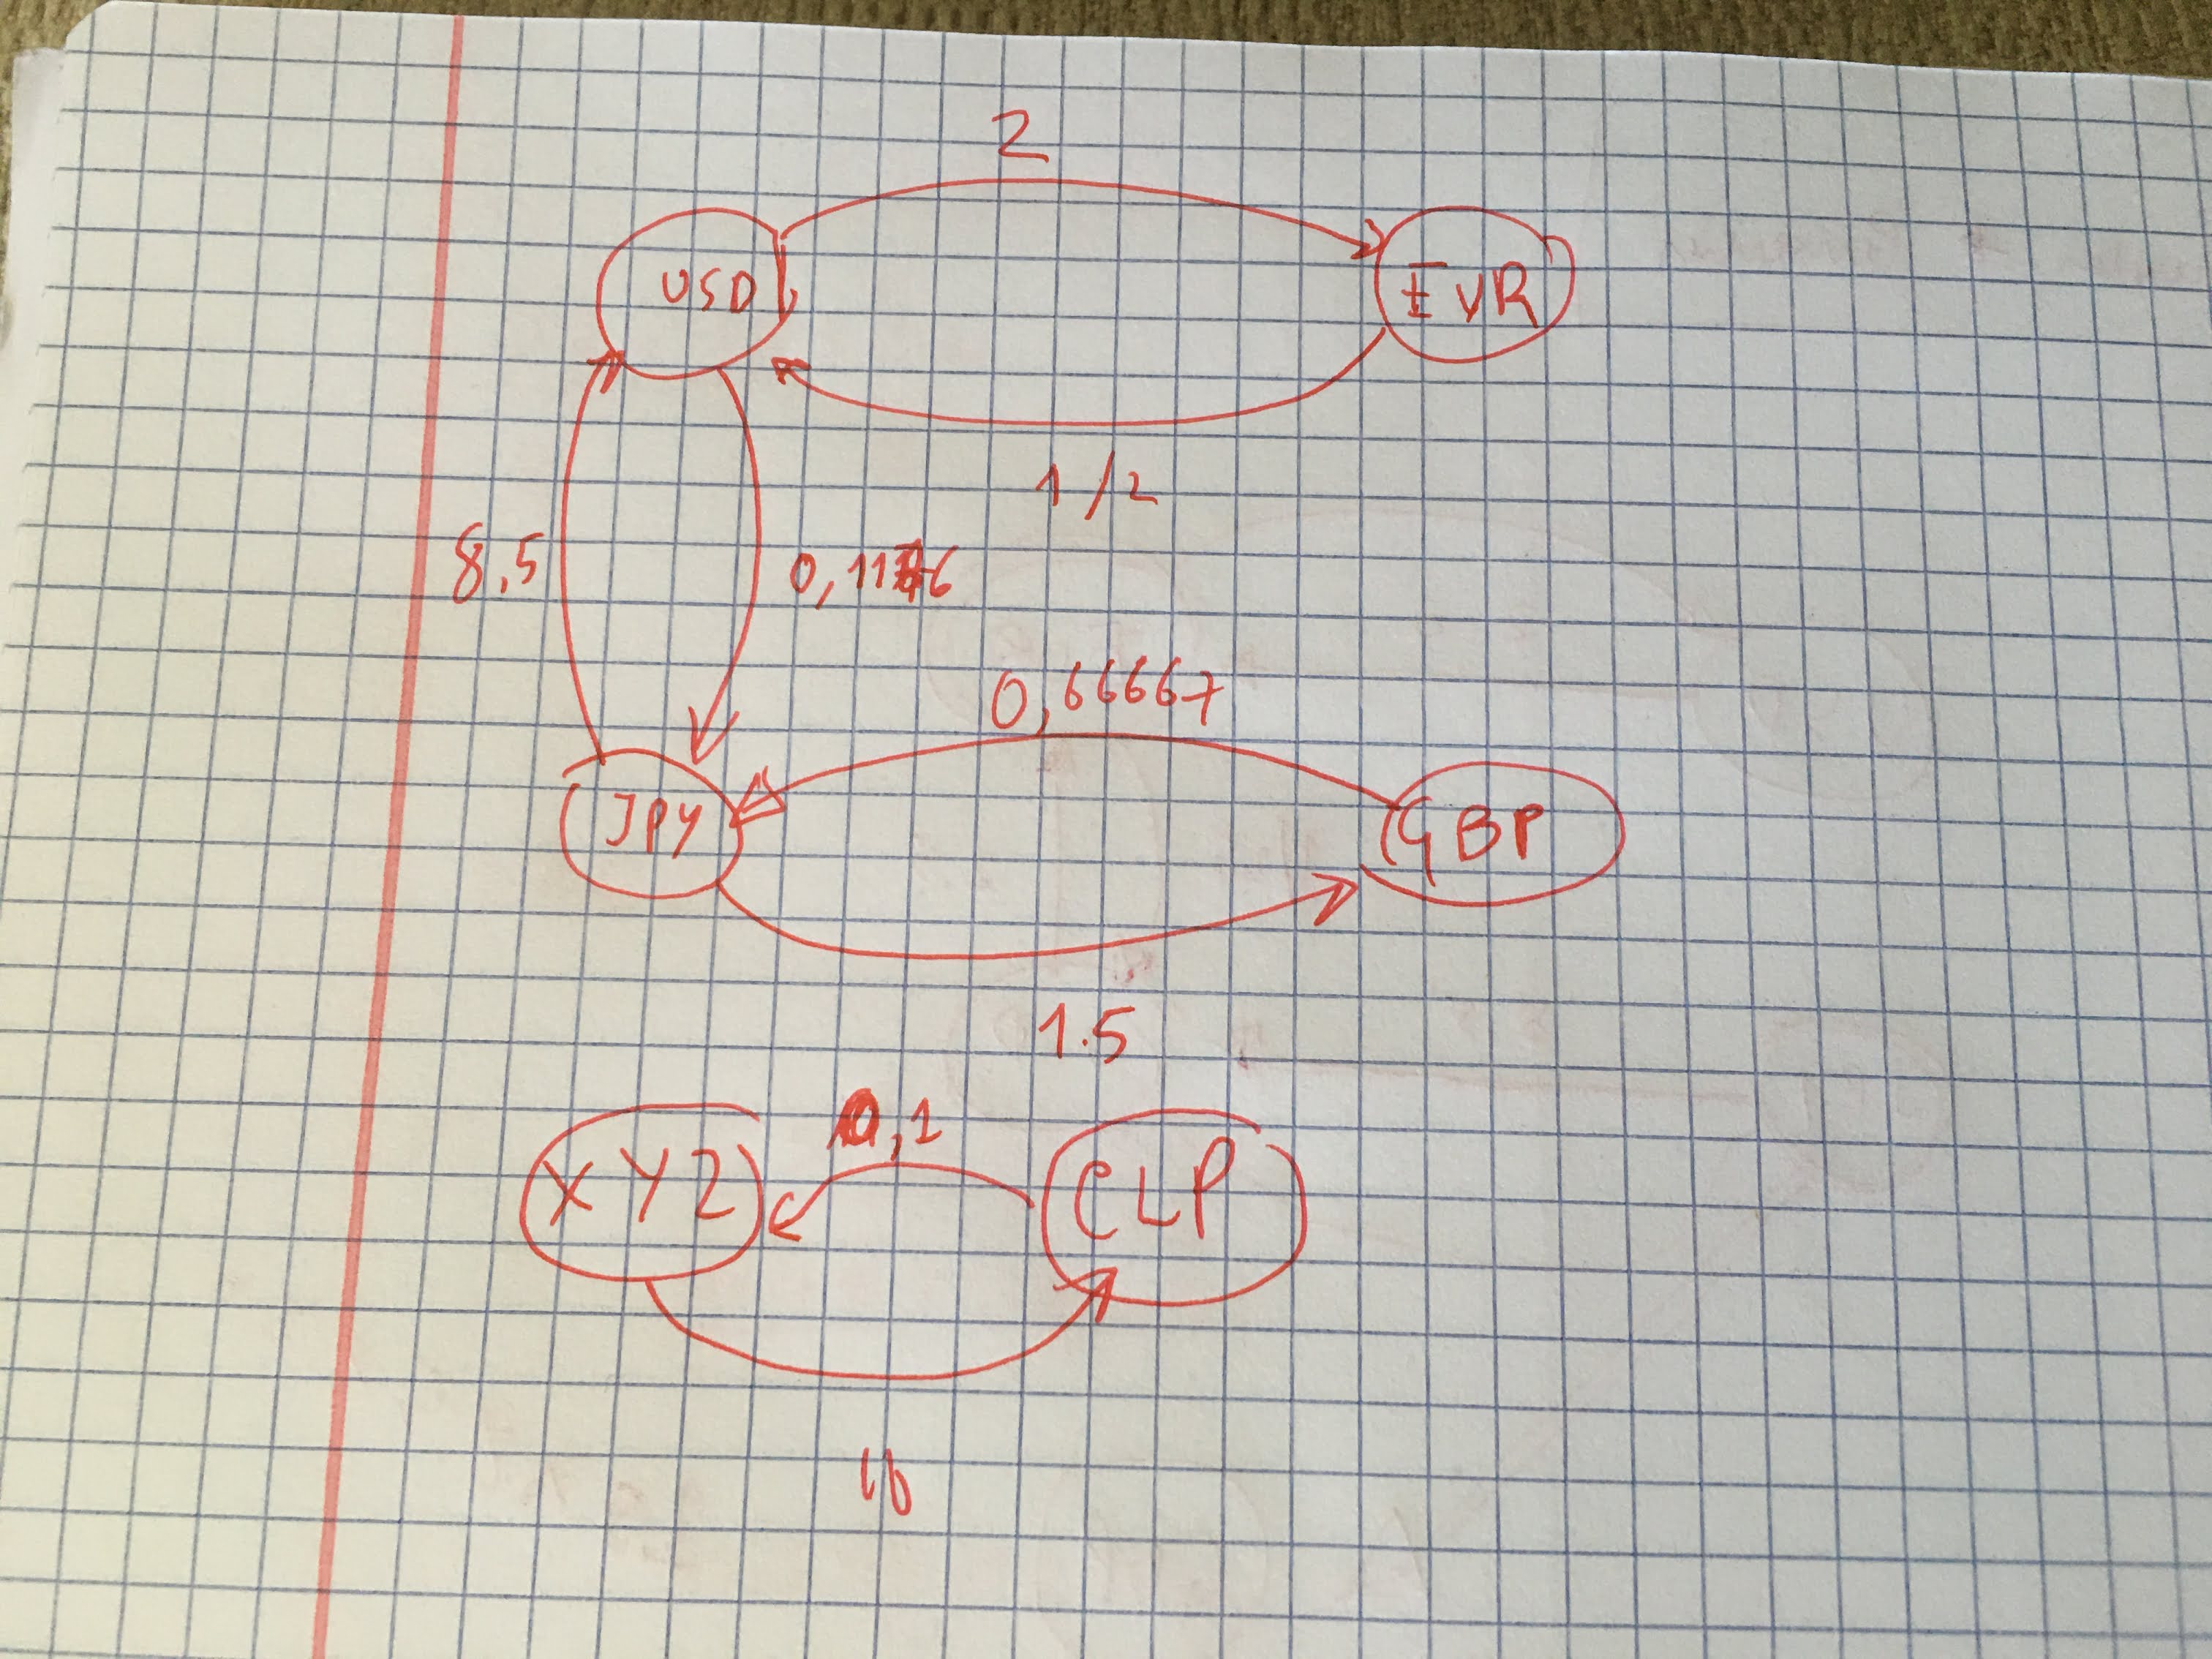 2
USD
EVR
1/2
8,5
0,1176
0,66667
JPY
GBP
1.5
0,1
XYZ
CLP
10